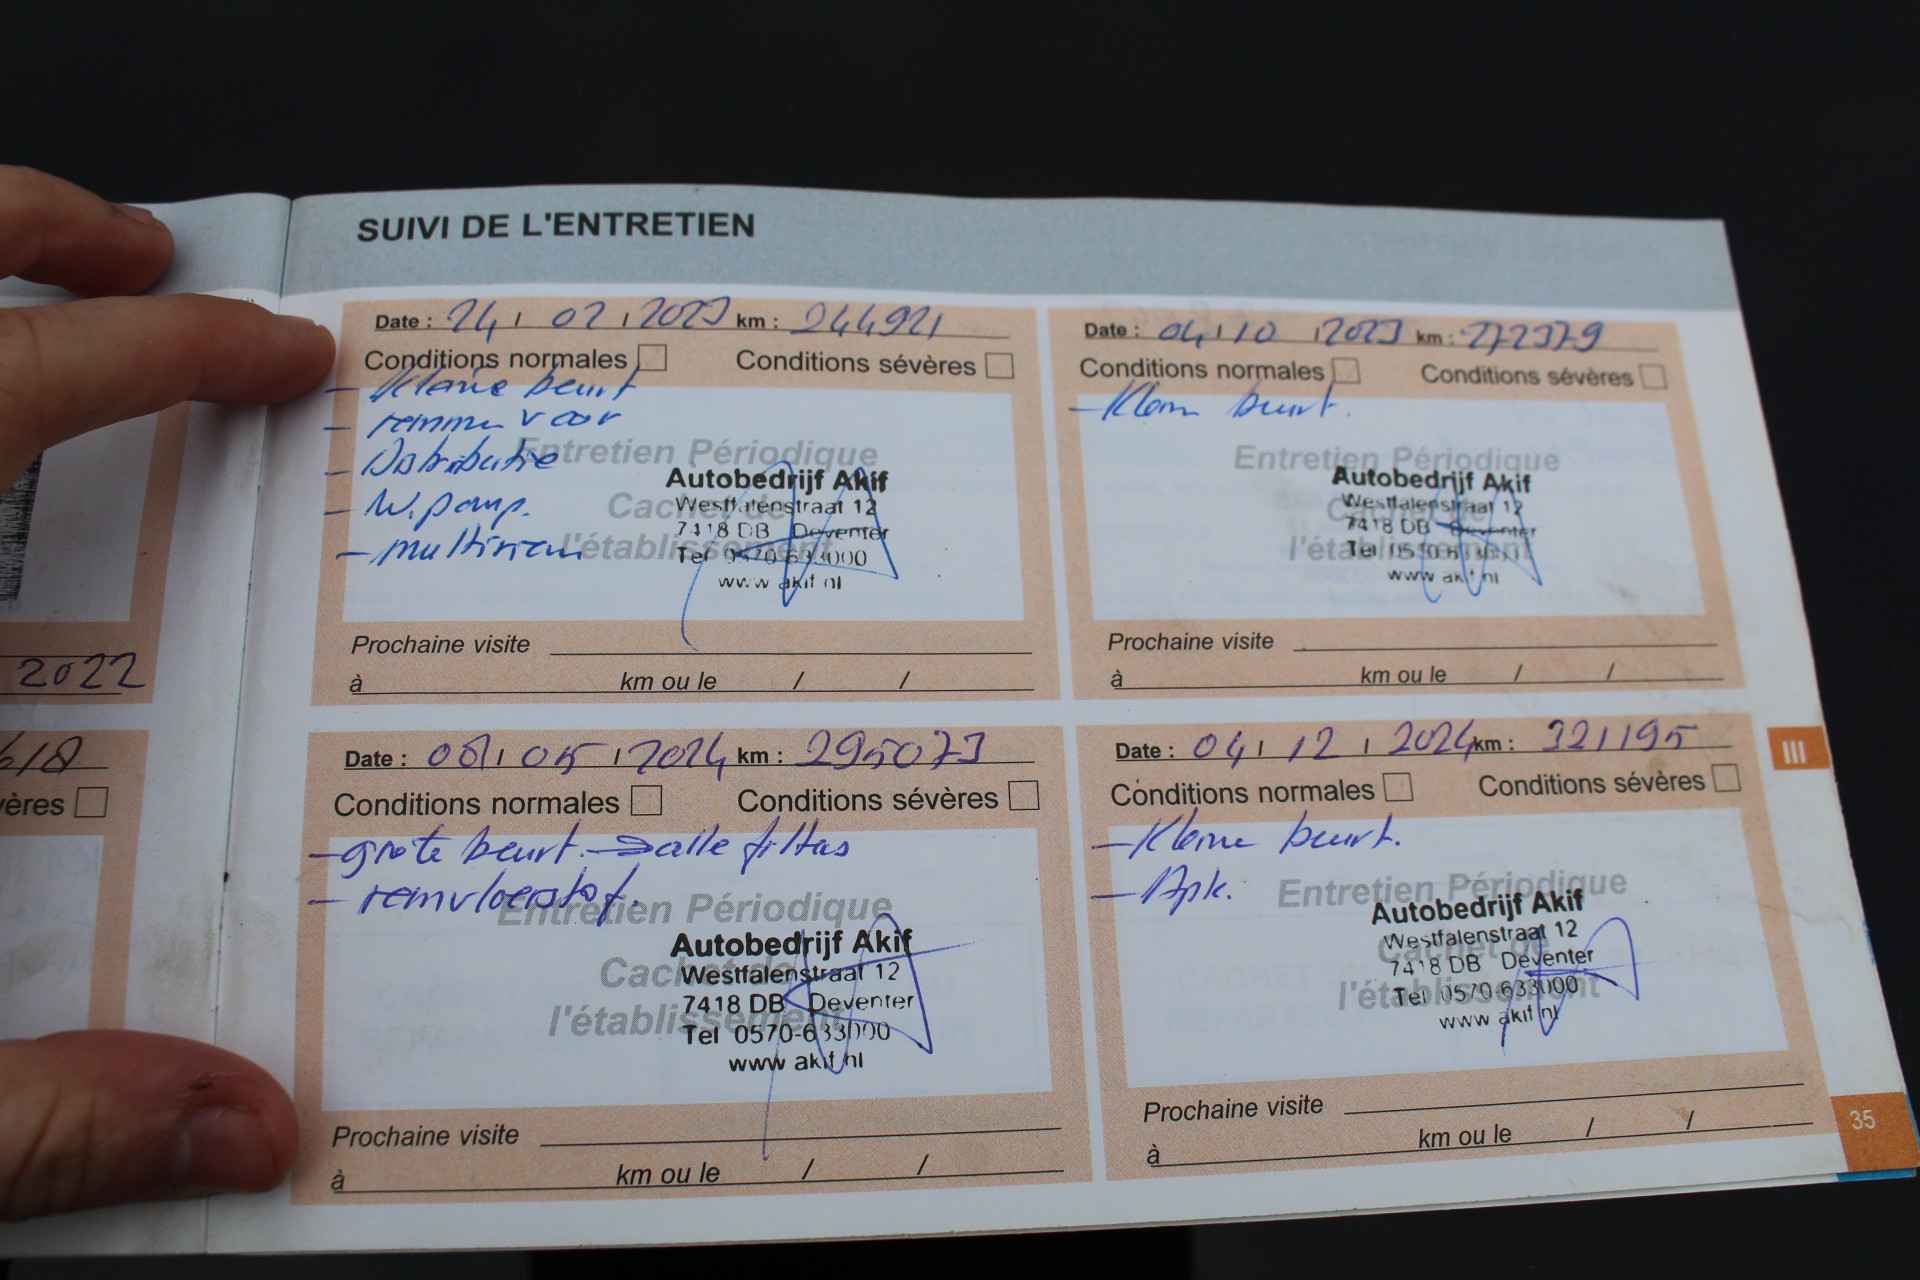 SUIVI DE L'ENTRETIEN
Date : 24 / 02 / 2023 km : 244921
Conditions normales Conditions sévères
- Kleine beurt
- remmen voor
- Distributie
- W. pomp.
- multiriem
Entretien Périodique
Cachet de
l'établissement
Autobedrijf Akif
Westfalenstraat 12
7418 DB Deventer
Tel 0570-633000
www.akif.nl
Prochaine visite
à km ou le / /
Date : 04 / 10 / 2023 km : 272379
Conditions normales Conditions sévères
- Klein beurt.
Entretien Périodique
Cachet de
l'établissement
Autobedrijf Akif
Westfalenstraat 12
7418 DB Deventer
Tel 0570-633000
www.akif.nl
Prochaine visite
à km ou le / /
2022
618
vères
Date : 08 / 05 / 2024 km : 295073
Conditions normales Conditions sévères
- grote beurt. → alle filters
- remvloeistof.
Entretien Périodique
Cachet de
l'établissement
Autobedrijf Akif
Westfalenstraat 12
7418 DB Deventer
Tel 0570-633000
www.akif.nl
Prochaine visite
à km ou le / /
Date : 04 / 12 / 2024 km : 321195
Conditions normales Conditions sévères
- Kleine beurt.
- Apk.
Entretien Périodique
Cachet de
l'établissement
Autobedrijf Akif
Westfalenstraat 12
7418 DB Deventer
Tel 0570-633000
www.akif.nl
Prochaine visite
à km ou le / /
III
35